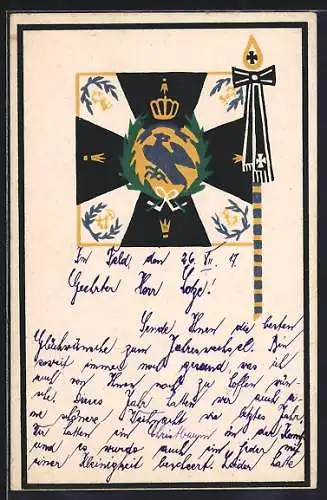 Im Feld, den 26. XII. 17.
Geehrter Herr Lotze!
Sende Ihnen die besten
Glückwünsche zum Jahreswechsel. Bin
soweit immer noch gesund, was ich
auch von Ihnen noch zu hoffen
Dieses Jahr hatten wir auch
schöne Weihnacht wie letztes Jahr,
Wir hatten ein Christbaum in der Komp.
und es wurde auch ein jeder mit
einer Kleinigkeit beschert. Leider hatte